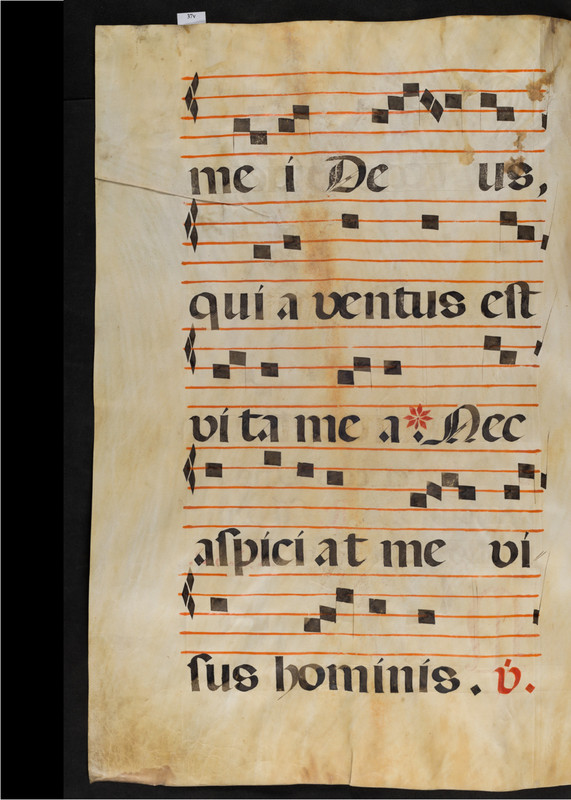 37v
me i De us,
qui a ventus est
vi ta me a * Nec
aspici at me vi
sus hominis. v.